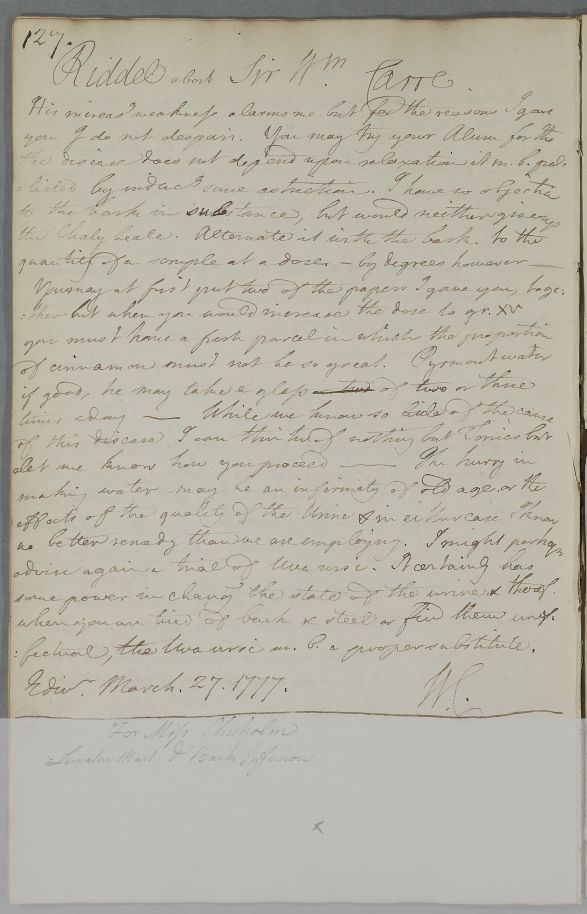 127.
Riddel about Sir Wm. Carre
His increas'd weakness alarms me but for the reasons I gave
you I do not despair. You may try your Alum for tho
the disease does not depend upon relaxation it m. b. pal:
:liated by induc'g some astriction. I have no objection
to the bark in substance, but would neither give up
the Chalybeate. Alternate it with the bark. to the
quantity of a scruple at a dose. - by degrees however —
You may at first put two of the papers I gave you, toge:
:ther but when you would increase the dose to gr. XV
you must have a fresh parcel in which the proportion
of cinnamon must not be so great. Pyrmont water
if good, he may take a glass of two or three
times a day — While we know so little of the cause
of this disease I can think of nothing but Tonics but
let me know how you proceed — The hurry in
making water may be an infirmity of old age, or the
effects of the quality of the Urine & in either case I know
no better remedy than we are employing. I might perhaps
advise again a trial of Uva ursi. It certainly has
some power in chang'g the state of the urine & therefore
when you are tired of bark & steel or find them inef:
:fectual, the Uva ursi m. b. a proper substitute.
Edinr. March. 27. 1777. W.C.
For Miss Chisholm
Simalur Mart & Bark Infusion